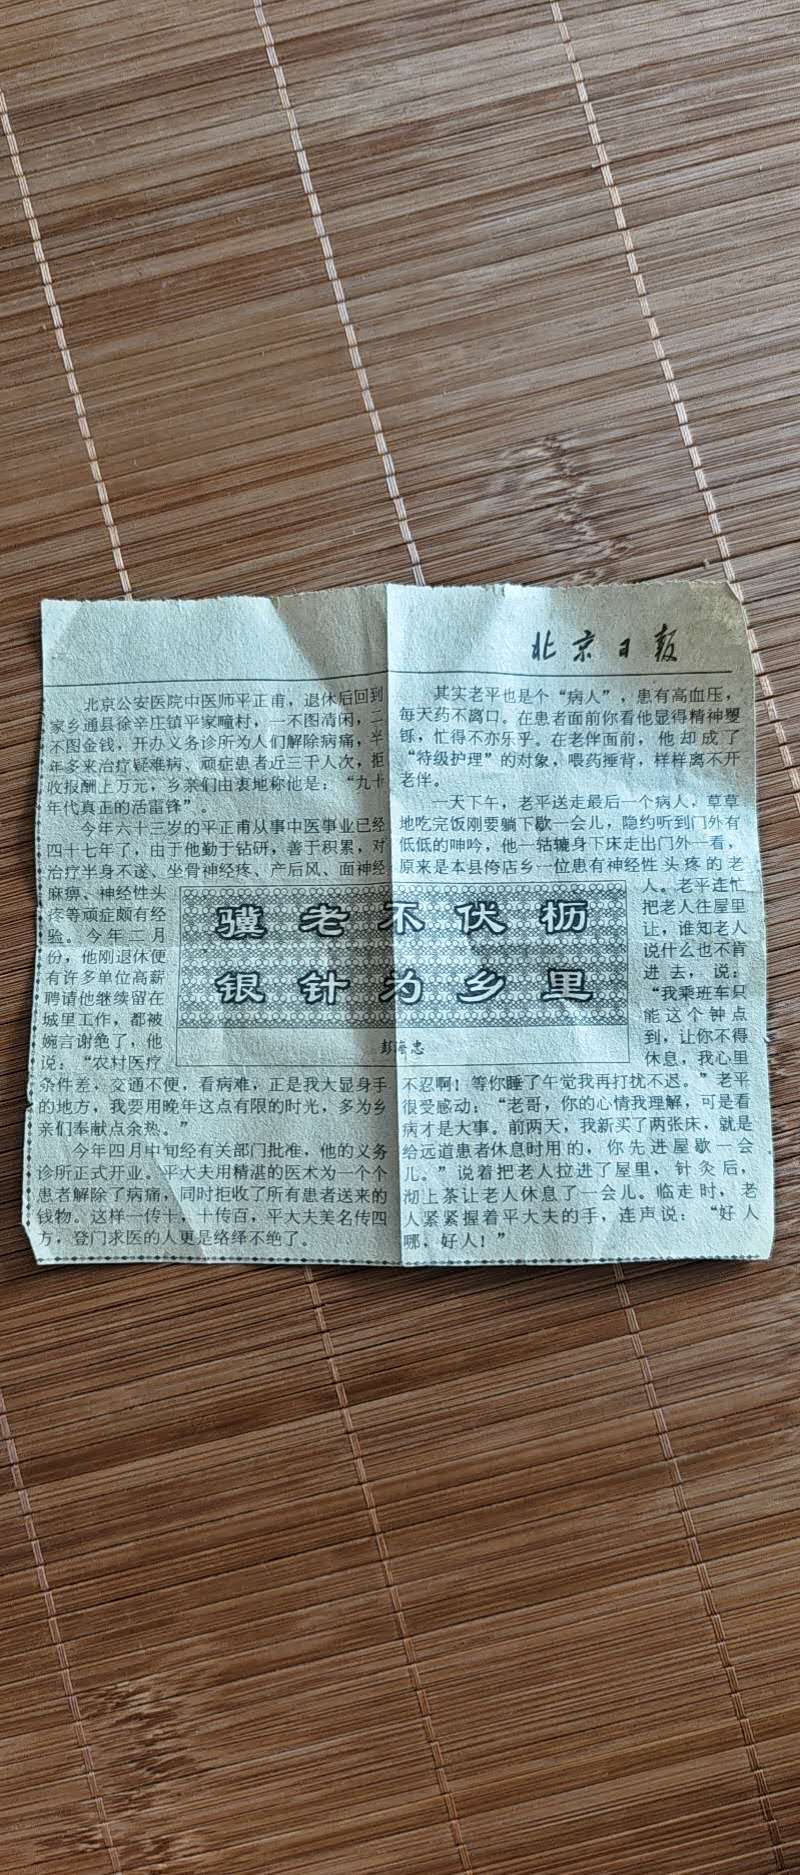 北京日报
北京公安医院中医师平正甫，退休后回到
家乡通县徐辛庄镇平家疃村，一不图清闲，二
不图金钱，开办义务诊所为人们解除病痛，半
年多来治疗疑难病、顽症患者近三千人次，拒
收报酬上万元，乡亲们由衷地称他是：“九十
年代真正的活雷锋”。
今年六十三岁的平正甫从事中医事业已经
四十七年了，由于他勤于钻研，善于积累，对
治疗半身不遂、坐骨神经疼、产后风、面神经
麻痹、神经性头
疼等顽症颇有经
验。今年二月
份，他刚退休便
有许多单位高薪
聘请他继续留在
城里工作，都被
婉言谢绝了，他
说：“农村医疗
条件差，交通不便，看病难，正是我大显身手
的地方，我要用晚年这点有限的时光，多为乡
亲们奉献点余热。”
今年四月中旬经有关部门批准，他的义务
诊所正式开业。平大夫用精湛的医术为一个个
患者解除了病痛，同时拒收了所有患者送来的
钱物。这样一传十，十传百，平大夫美名传四
方，登门求医的人更是络绎不绝了。
骥老不伏枥
银针为乡里
彭海忠
其实老平也是个“病人”，患有高血压，
每天药不离口。在患者面前你看他显得精神矍
铄，忙得不亦乐乎。在老伴面前，他却成了
“特级护理”的对象，喂药捶背，样样离不开
老伴。
一天下午，老平送走最后一个病人，草草
地吃完饭刚要躺下歇一会儿，隐约听到门外有
低低的呻吟，他一轱辘身下床走出门外一看，
原来是本县侉店乡一位患有神经性头疼的老
人。老平连忙
把老人往屋里
让，谁知老人
说什么也不肯
进去，说：
“我乘班车只
能这个钟点
到，让你不得
休息，我心里
不忍啊！等你睡了午觉我再打扰不迟。”老平
很受感动：“老哥，你的心情我理解，可是看
病才是大事。前两天，我新买了两张床，就是
给远道患者休息时用的，你先进屋歇一会
儿。”说着把老人拉进了屋里，针灸后，
沏上茶让老人休息了一会儿。临走时，老
人紧紧握着平大夫的手，连声说：“好人
哪，好人！”